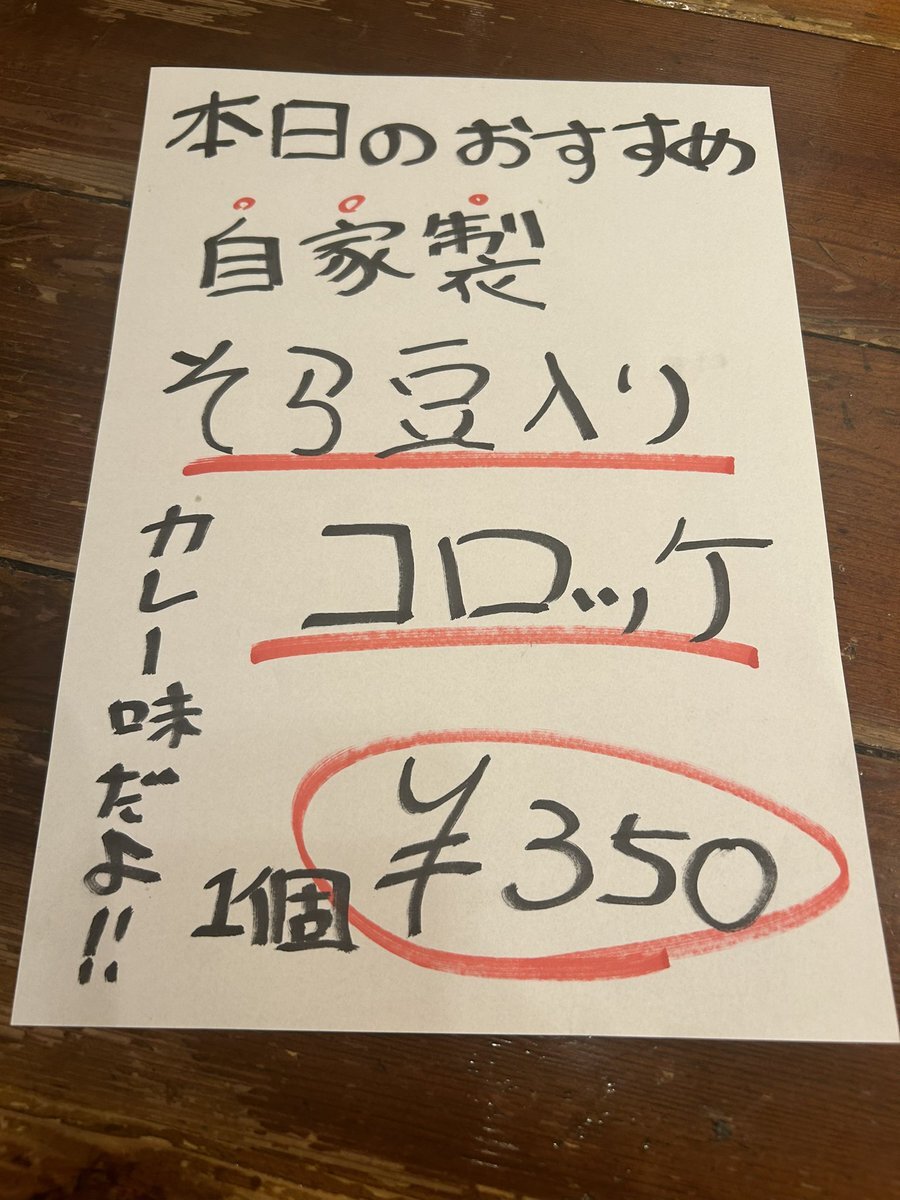 本日のおすすめ
自家製
そら豆入り
コロッケ
カレー味だよ!!
1個 ¥350